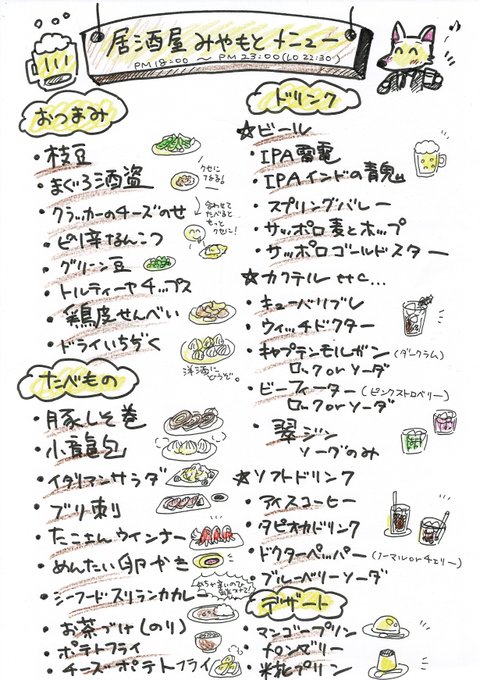 居酒屋 みやもと メニュー
PM 18:00 〜 PM 23:00 (LO 22:30)
おつまみ
・枝豆
・まぐろ酒盗
クセになる!
・クラッカーのチーズのせ
合わせてたべるともっとクセに!
・ピリ辛なんこつ
・グリーン豆
・トルティーヤチップス
・鶏皮せんべい
・ドライいちぢく
洋酒にどうぞ。
たべもの
・豚しそ巻
・小龍包
・イタリアンサラダ
・ブリ刺
・たこさんウインナー
・めんたい卵やき
・シーフードスリランカカレー
・お茶づけ(のり)
・ポテトフライ
・チーズポテトフライ
ドリンク
☆ビール
・IPA雷電
・IPAインドの青鬼
・スプリングバレー
・サッポロ麦とホップ
・サッポロゴールドスター
☆カクテルetc...
・キューバリブレ
・ウィッチドクター
・キャプテンモルガン(ダークラム)
ロックorソーダ
・ビーフィーター(ピンクストロベリー)
ロックorソーダ
・翠ジン
ソーダのみ
☆ソフトドリンク
・アイスコーヒー
・タピオカドリンク
・ドクターペッパー(ノーマルorチェリー)
・ブルーベリーソーダ
デザート
・マンゴープリン
・メロンゼリー
・米粒プリン